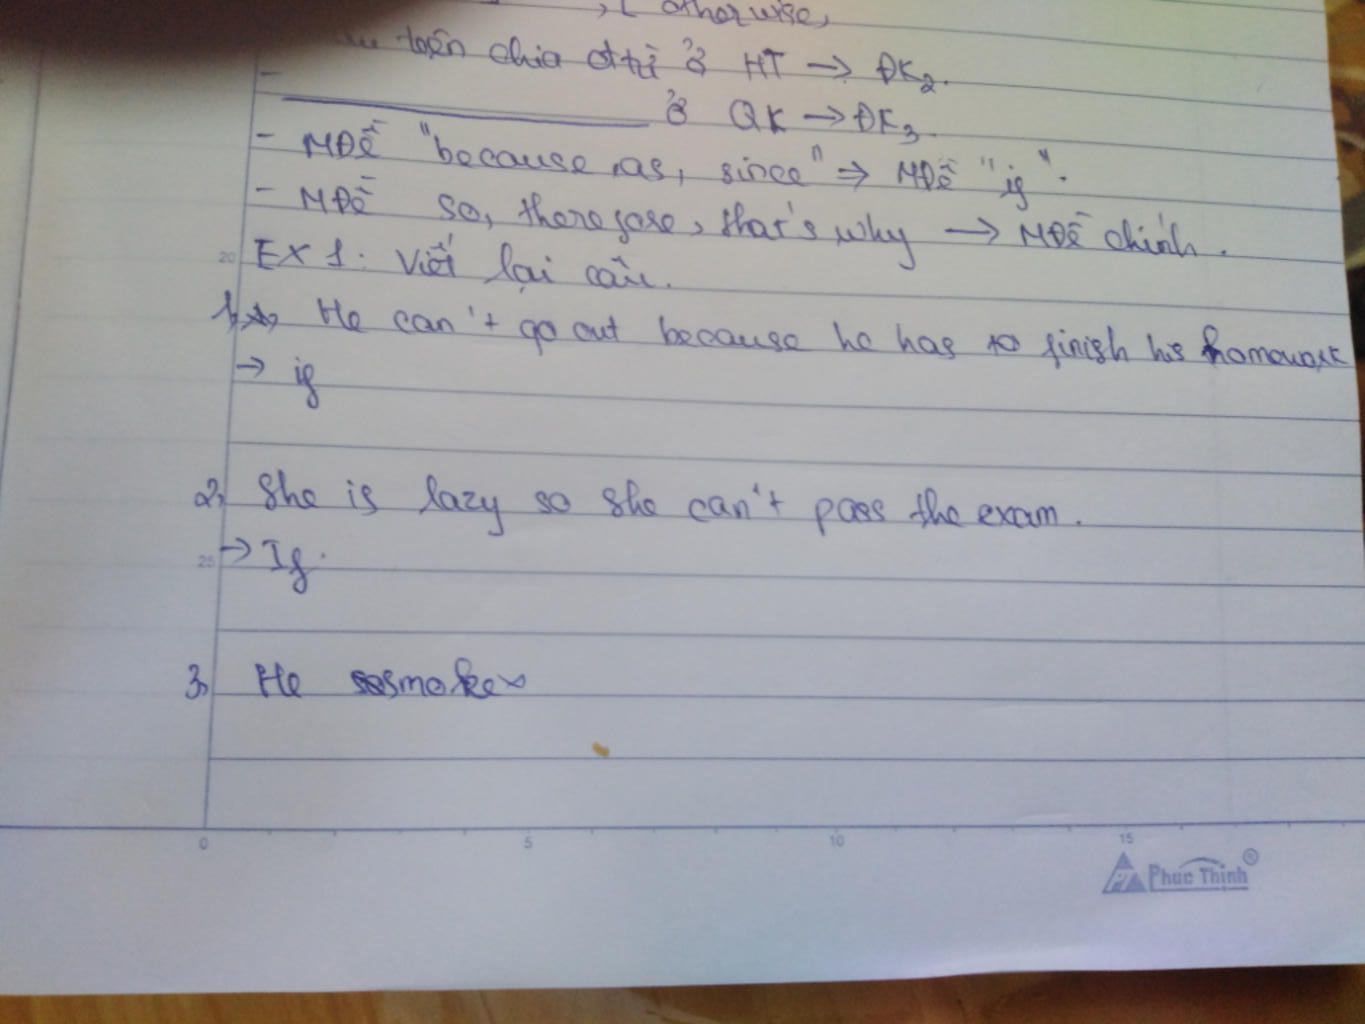 , [ otherwise,
trên chia đtừ ở HT → ĐK2.
- ở QK → ĐK3.
- MĐề "because, as, since" ⇒ MĐề "if".
- MĐề so, therefore, that's why → MĐề chính.
20 EX 1: Viết lại câu.
1, He can't go out because he has to finish his homework
→ if
2, She is lazy so she can't pass the exam.
25 → If.
3, He smokes
0 5 10 15
Phuc Thinh ®